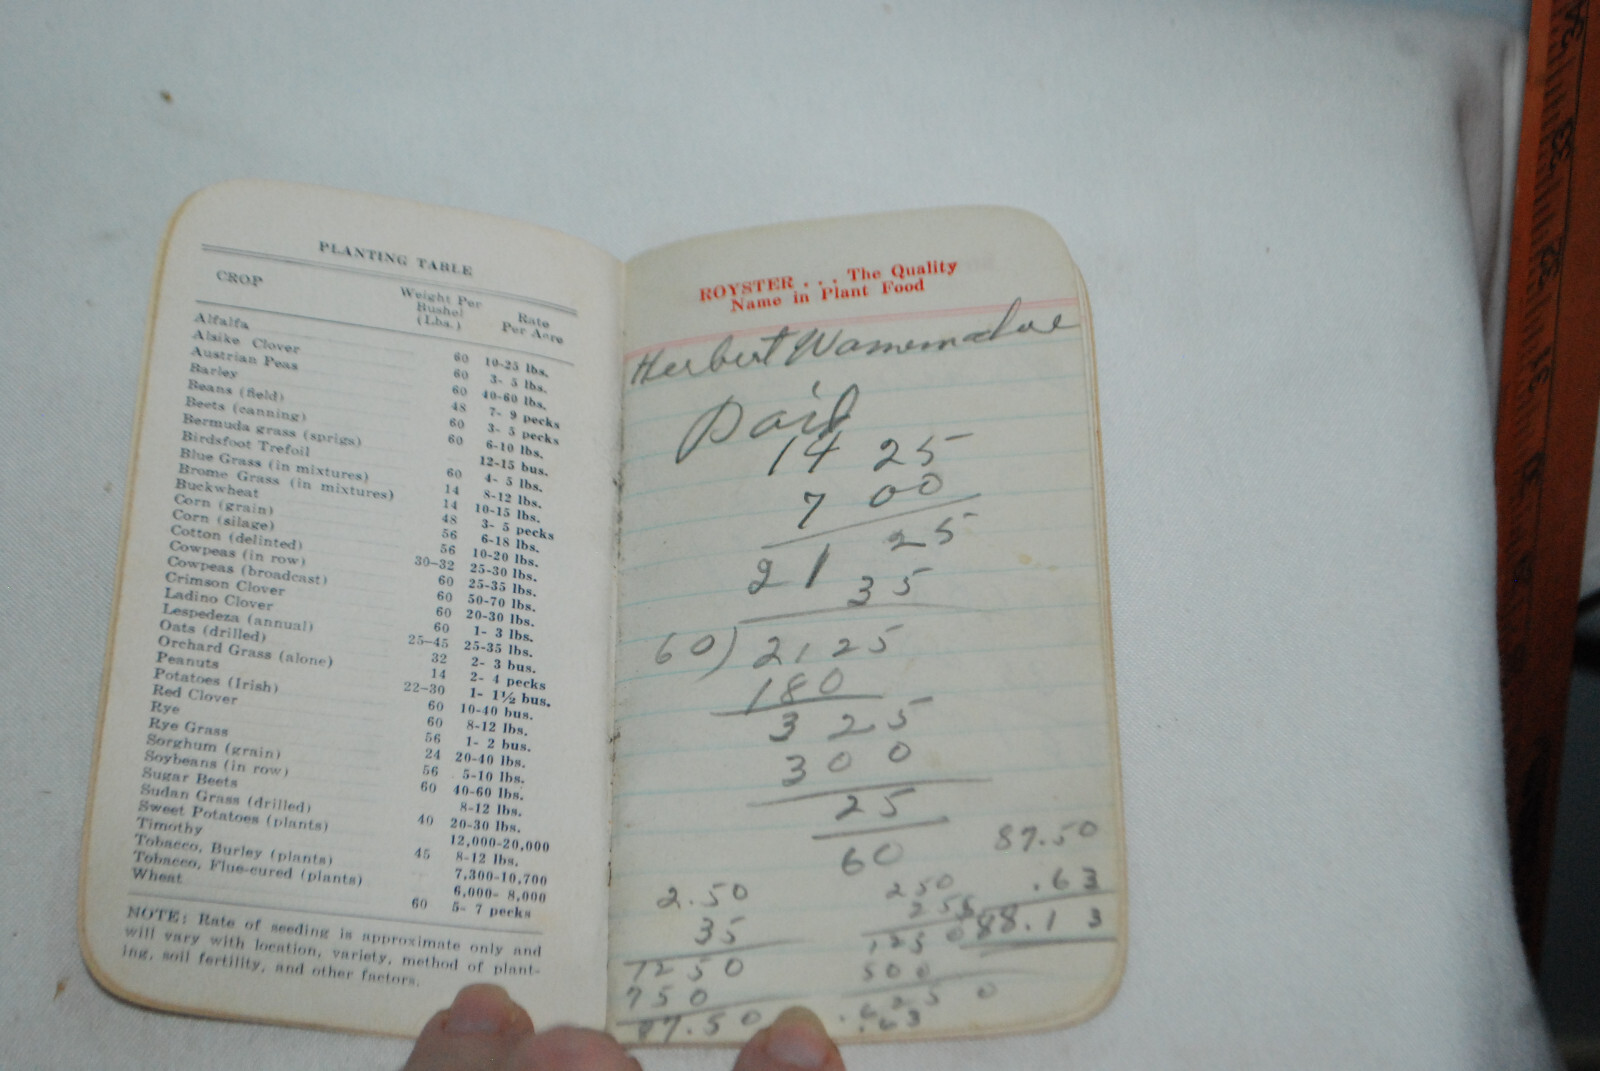 PLANTING TABLE
CROP Weight Per Bushel (Lbs.) Rate Per Acre
Alfalfa 60 10-25 lbs.
Alsike Clover 60 3- 5 lbs.
Austrian Peas 60 40-60 lbs.
Barley 48 7- 9 pecks
Beans (field) 60 3- 5 pecks
Beets (canning) 60 6-10 lbs.
Bermuda grass (sprigs) 12-15 bus.
Birdsfoot Trefoil 60 4- 5 lbs.
Blue Grass (in mixtures) 14 8-12 lbs.
Brome Grass (in mixtures) 14 10-15 lbs.
Buckwheat 48 3- 5 pecks
Corn (grain) 56 6-18 lbs.
Corn (silage) 56 10-20 lbs.
Cotton (delinted) 30-32 25-30 lbs.
Cowpeas (in row) 60 25-35 lbs.
Cowpeas (broadcast) 60 50-70 lbs.
Crimson Clover 60 20-30 lbs.
Ladino Clover 60 1- 3 lbs.
Lespedeza (annual) 25-45 25-35 lbs.
Oats (drilled) 32 2- 3 bus.
Orchard Grass (alone) 14 2- 4 pecks
Peanuts 22-30 1- 1½ bus.
Potatoes (Irish) 60 10-40 bus.
Red Clover 60 8-12 lbs.
Rye 56 1- 2 bus.
Rye Grass 24 20-40 lbs.
Sorghum (grain) 56 5-10 lbs.
Soybeans (in row) 60 40-60 lbs.
Sugar Beets 8-12 lbs.
Sudan Grass (drilled) 40 20-30 lbs.
Sweet Potatoes (plants) 12,000-20,000
Timothy 45 8-12 lbs.
Tobacco, Burley (plants) 7,300-10,700
Tobacco, Flue-cured (plants) 6,000- 8,000
Wheat 60 5- 7 pecks
NOTE: Rate of seeding is approximate only and
will vary with location, variety, method of plant-
ing, soil fertility, and other factors.
ROYSTER . . . The Quality
Name in Plant Food
Herbert
Paid
14 25
7 00
21 25
35
60) 2125
180
325
300
25
60
87.50
.63
88.13
2.50
35
1250
750
87.50
250
25
1250
500
.6250
.63
34
33
32
31